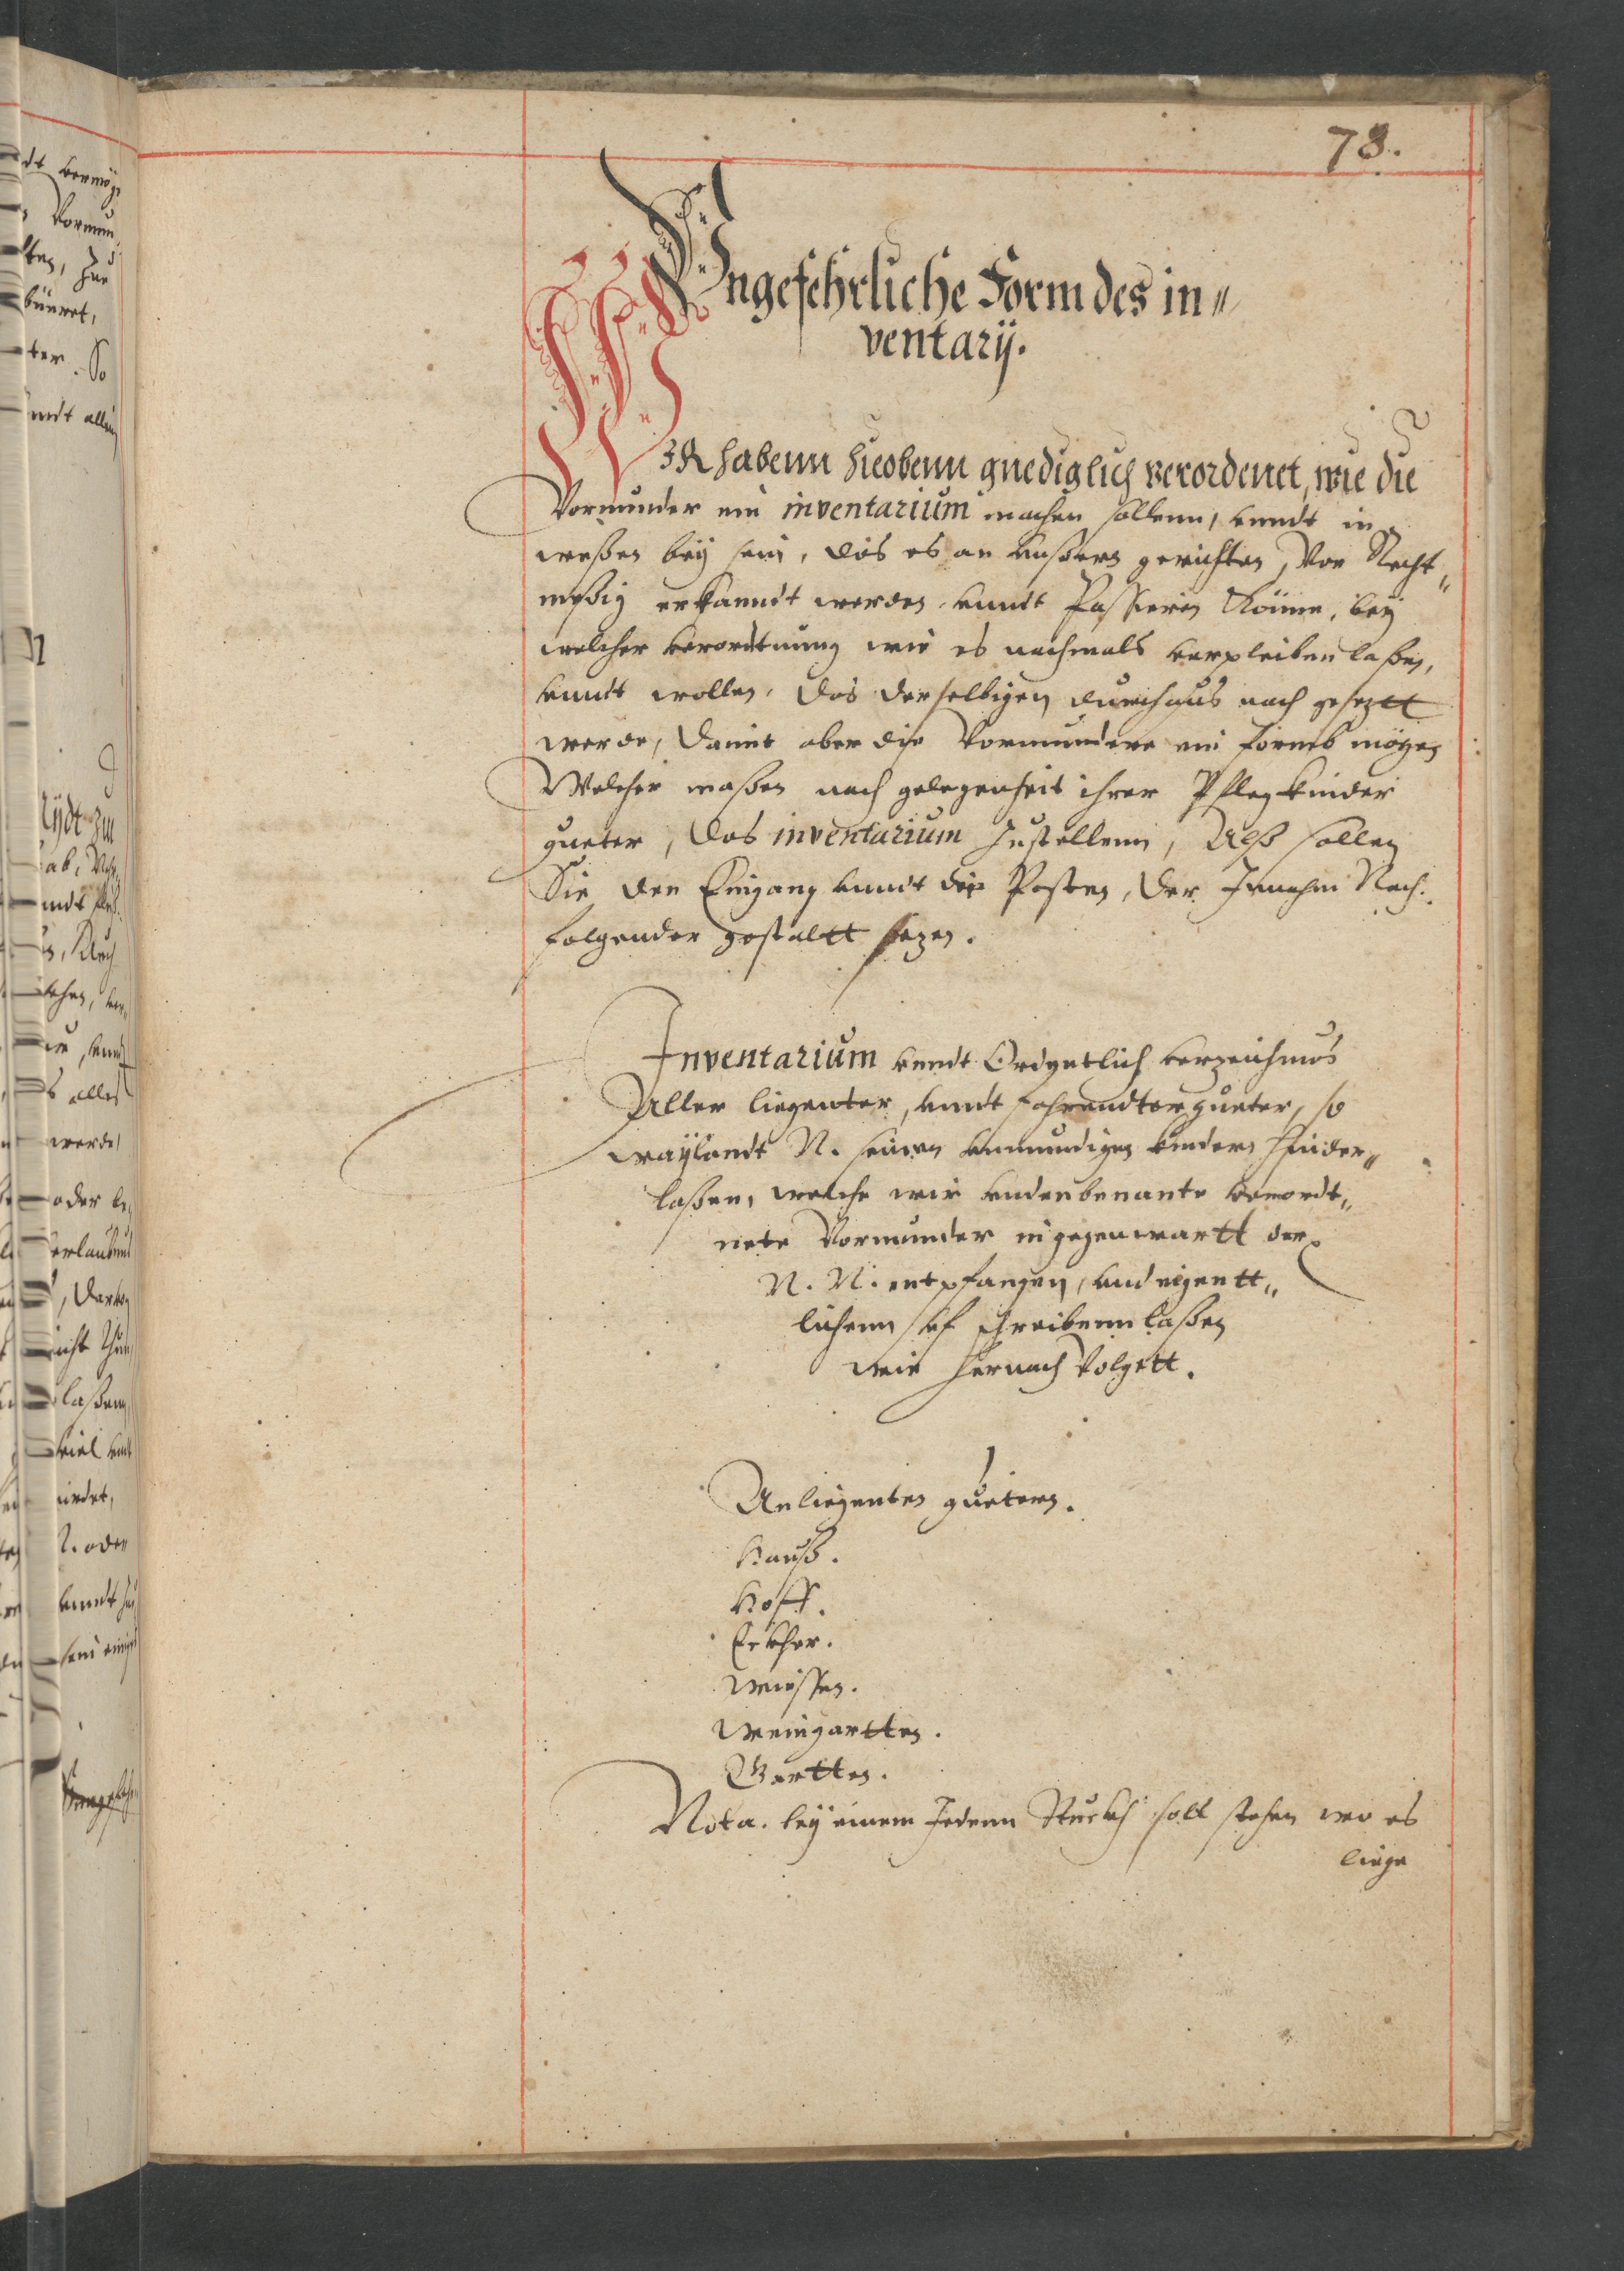 78.
Vngefehrliche Form des in„
ventarij.
WIR habenn hieobenn gnediglich verordenet, wie die
Vormunder ein inventarium machen sollenn, vnndt in
weßen bey sein, das es an vnßern gerichten, Vor Recht„
meßig erkanndt werden vnndt Passieren Könne, bey
welcher verordtnung wir es nachmals verpleiben laßen,
vnndt wollen, das derselbigen durchaus nach gesezt
werde, Damit aber die Vormundere ein formb mögen
Welcher maßen nach gelegenheit ihrer Pflegkinder
gueter, das inventarium Zustellenn, Alß sollen
Sie den Eingang vnndt die Posten, der Innahm Nach„
folgender gestaltt sezen.
Inventarium vnndt Ordentlich verzeichnus
Aller liegenter, vnndt fahrendter gueter, so
waylandt N. seinen vnmundigen kindern hinder„
laßen, welche wir endenbenante verordt„
nete Vormunder in gegenwartt der
N. N. entpfangen, vnd eigentt„
lichenn vf schreibenn laßen
wie hernach Volgett.
An liegenten guetern.
Hauß.
Hoff.
Eckher.
Wießen.
Weingartten.
Gartten.
Nota. bey einem Jedenn Stuckh soll stehen wo es
liege